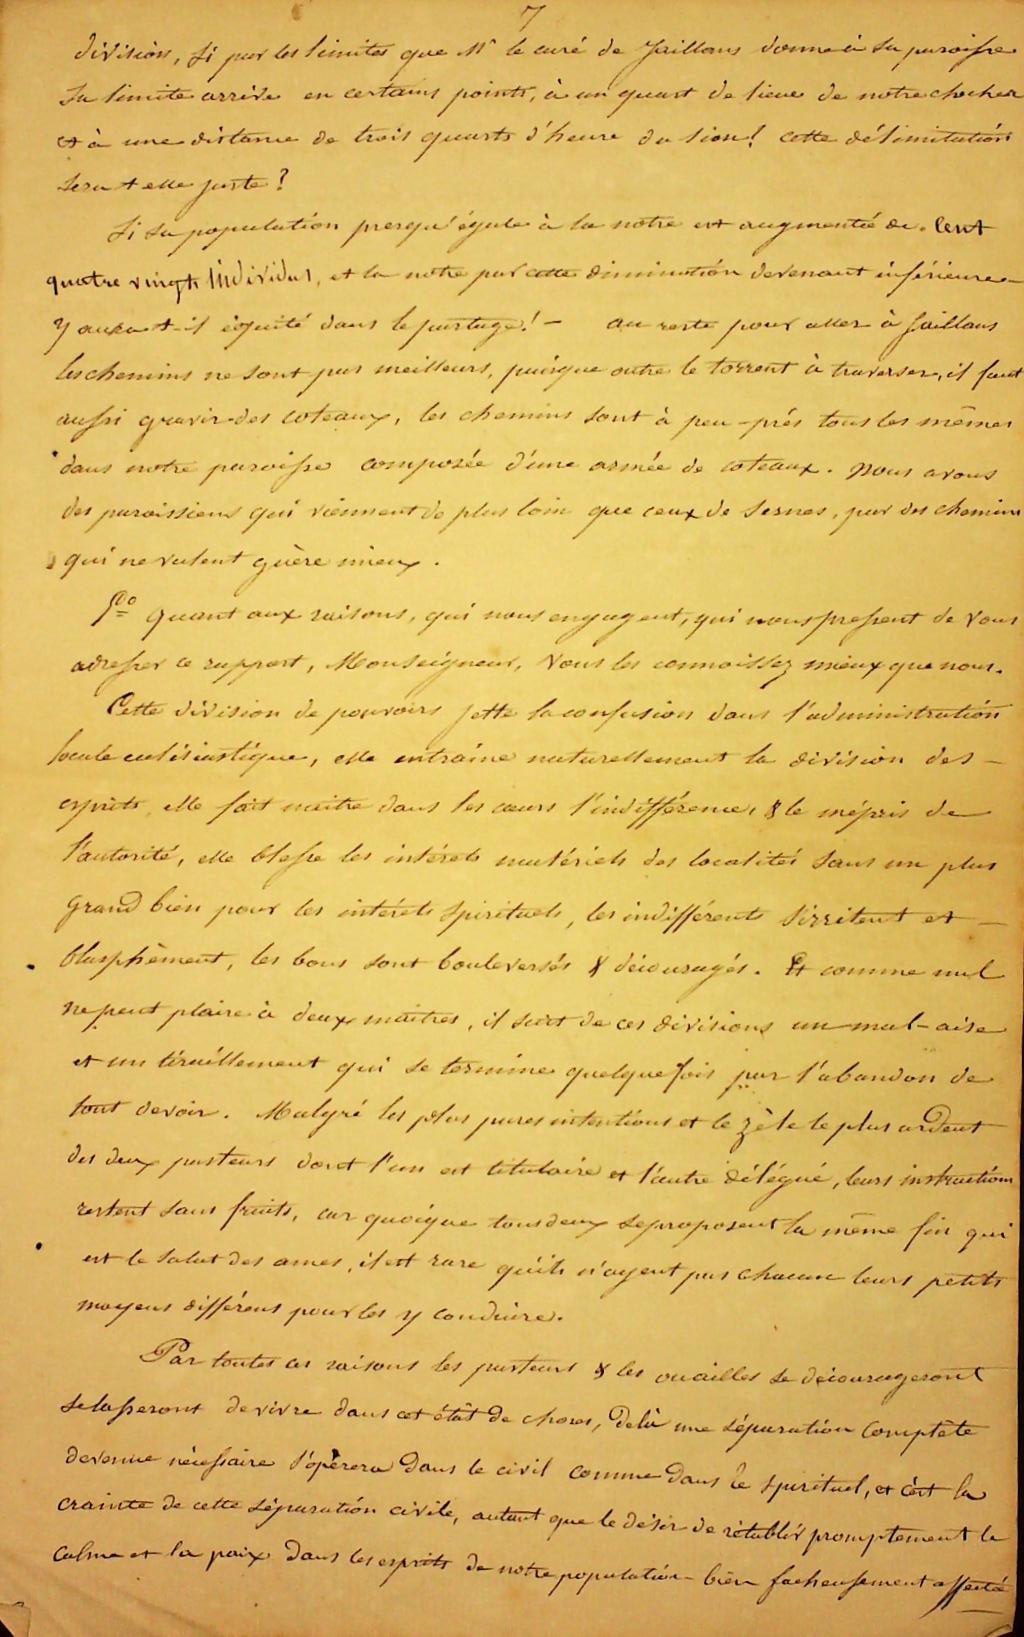 7
division, si par les limites que Mr le curé de Jaillans donne à sa paroisse
sa limite arrive en certains points, à un quart de lieue de notre clocher
et à une distance de trois quarts d'heure du sien! cette délimitation
sera t elle juste?
Si sa population presqu'égale à la notre est augmentée de cent
quatre vingts individus, et la notre par cette diminution devenant inférieure
y aura t-il équité dans le partage! — au reste pour aller à Jaillans
les chemins ne sont pas meilleurs, puisque outre le torrent à traverser, il faut
aussi gravir des coteaux, les chemins sont à peu-près tous les mêmes
dans notre paroisse composée d'une armée de coteaux. Nous avons
des paroissiens qui viennent de plus loin que ceux de Sernes, par des chemins
qui ne valent guère mieux.
quant aux raisons, qui nous engagent, qui nous pressent de vous
adresser ce rapport, Monseigneur, vous les connoissez mieux que nous.
Cette division de pouvoirs jette la confusion dans l'administration
locale eclésiastique, elle entraîne naturellement la division des —
esprits, elle fait naitre dans les cœurs l'indifférence, & le mépris de
l'autorité, elle blesse les intérets matériels des localités sans un plus
grand bien pour les intérets spirituels, les indifférents s'irritent et —
blasphèment, les bons sont bouleversés & découragés. Et comme nul
ne peut plaire à deux maitres, il suit de ces divisions un mal-aise
et un tiraillement qui se termine quelque fois par l'abandon de
tout devoir. Malgré les plus pures intentions et le zèle le plus ardent
des deux pasteurs dont l'un est titulaire et l'autre délégué, leurs instructions
restent sans fruits, car quoique tous deux se proposent la même fin qui
est le salut des ames, il est rare qu'ils n'ayent pas chacun leurs petits
moyens différens pour les y conduire.
Par toutes ces raisons les pasteurs & les ouailles se décourageront
se lasseront de vivre dans cet état de choses, delà une séparation complète
devenue nécessaire s'opèrera dans le civil comme dans le spirituel, et c'est la
crainte de cette séparation civile, autant que le désir de rétablir promptement le
calme et la paix dans les esprits de notre population bien facheusement affectée